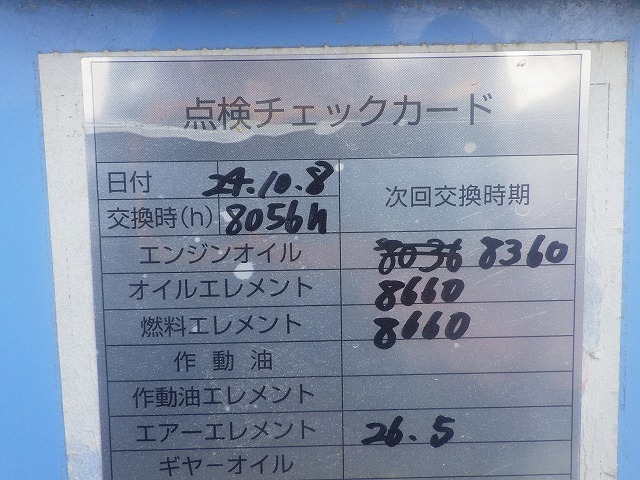 点検チェックカード
日付 24.10.8 次回交換時期
交換時(h) 8056h
エンジンオイル 8036 8360
オイルエレメント 8660
燃料エレメント 8660
作動油
作動油エレメント
エアーエレメント 26.5
ギヤーオイル